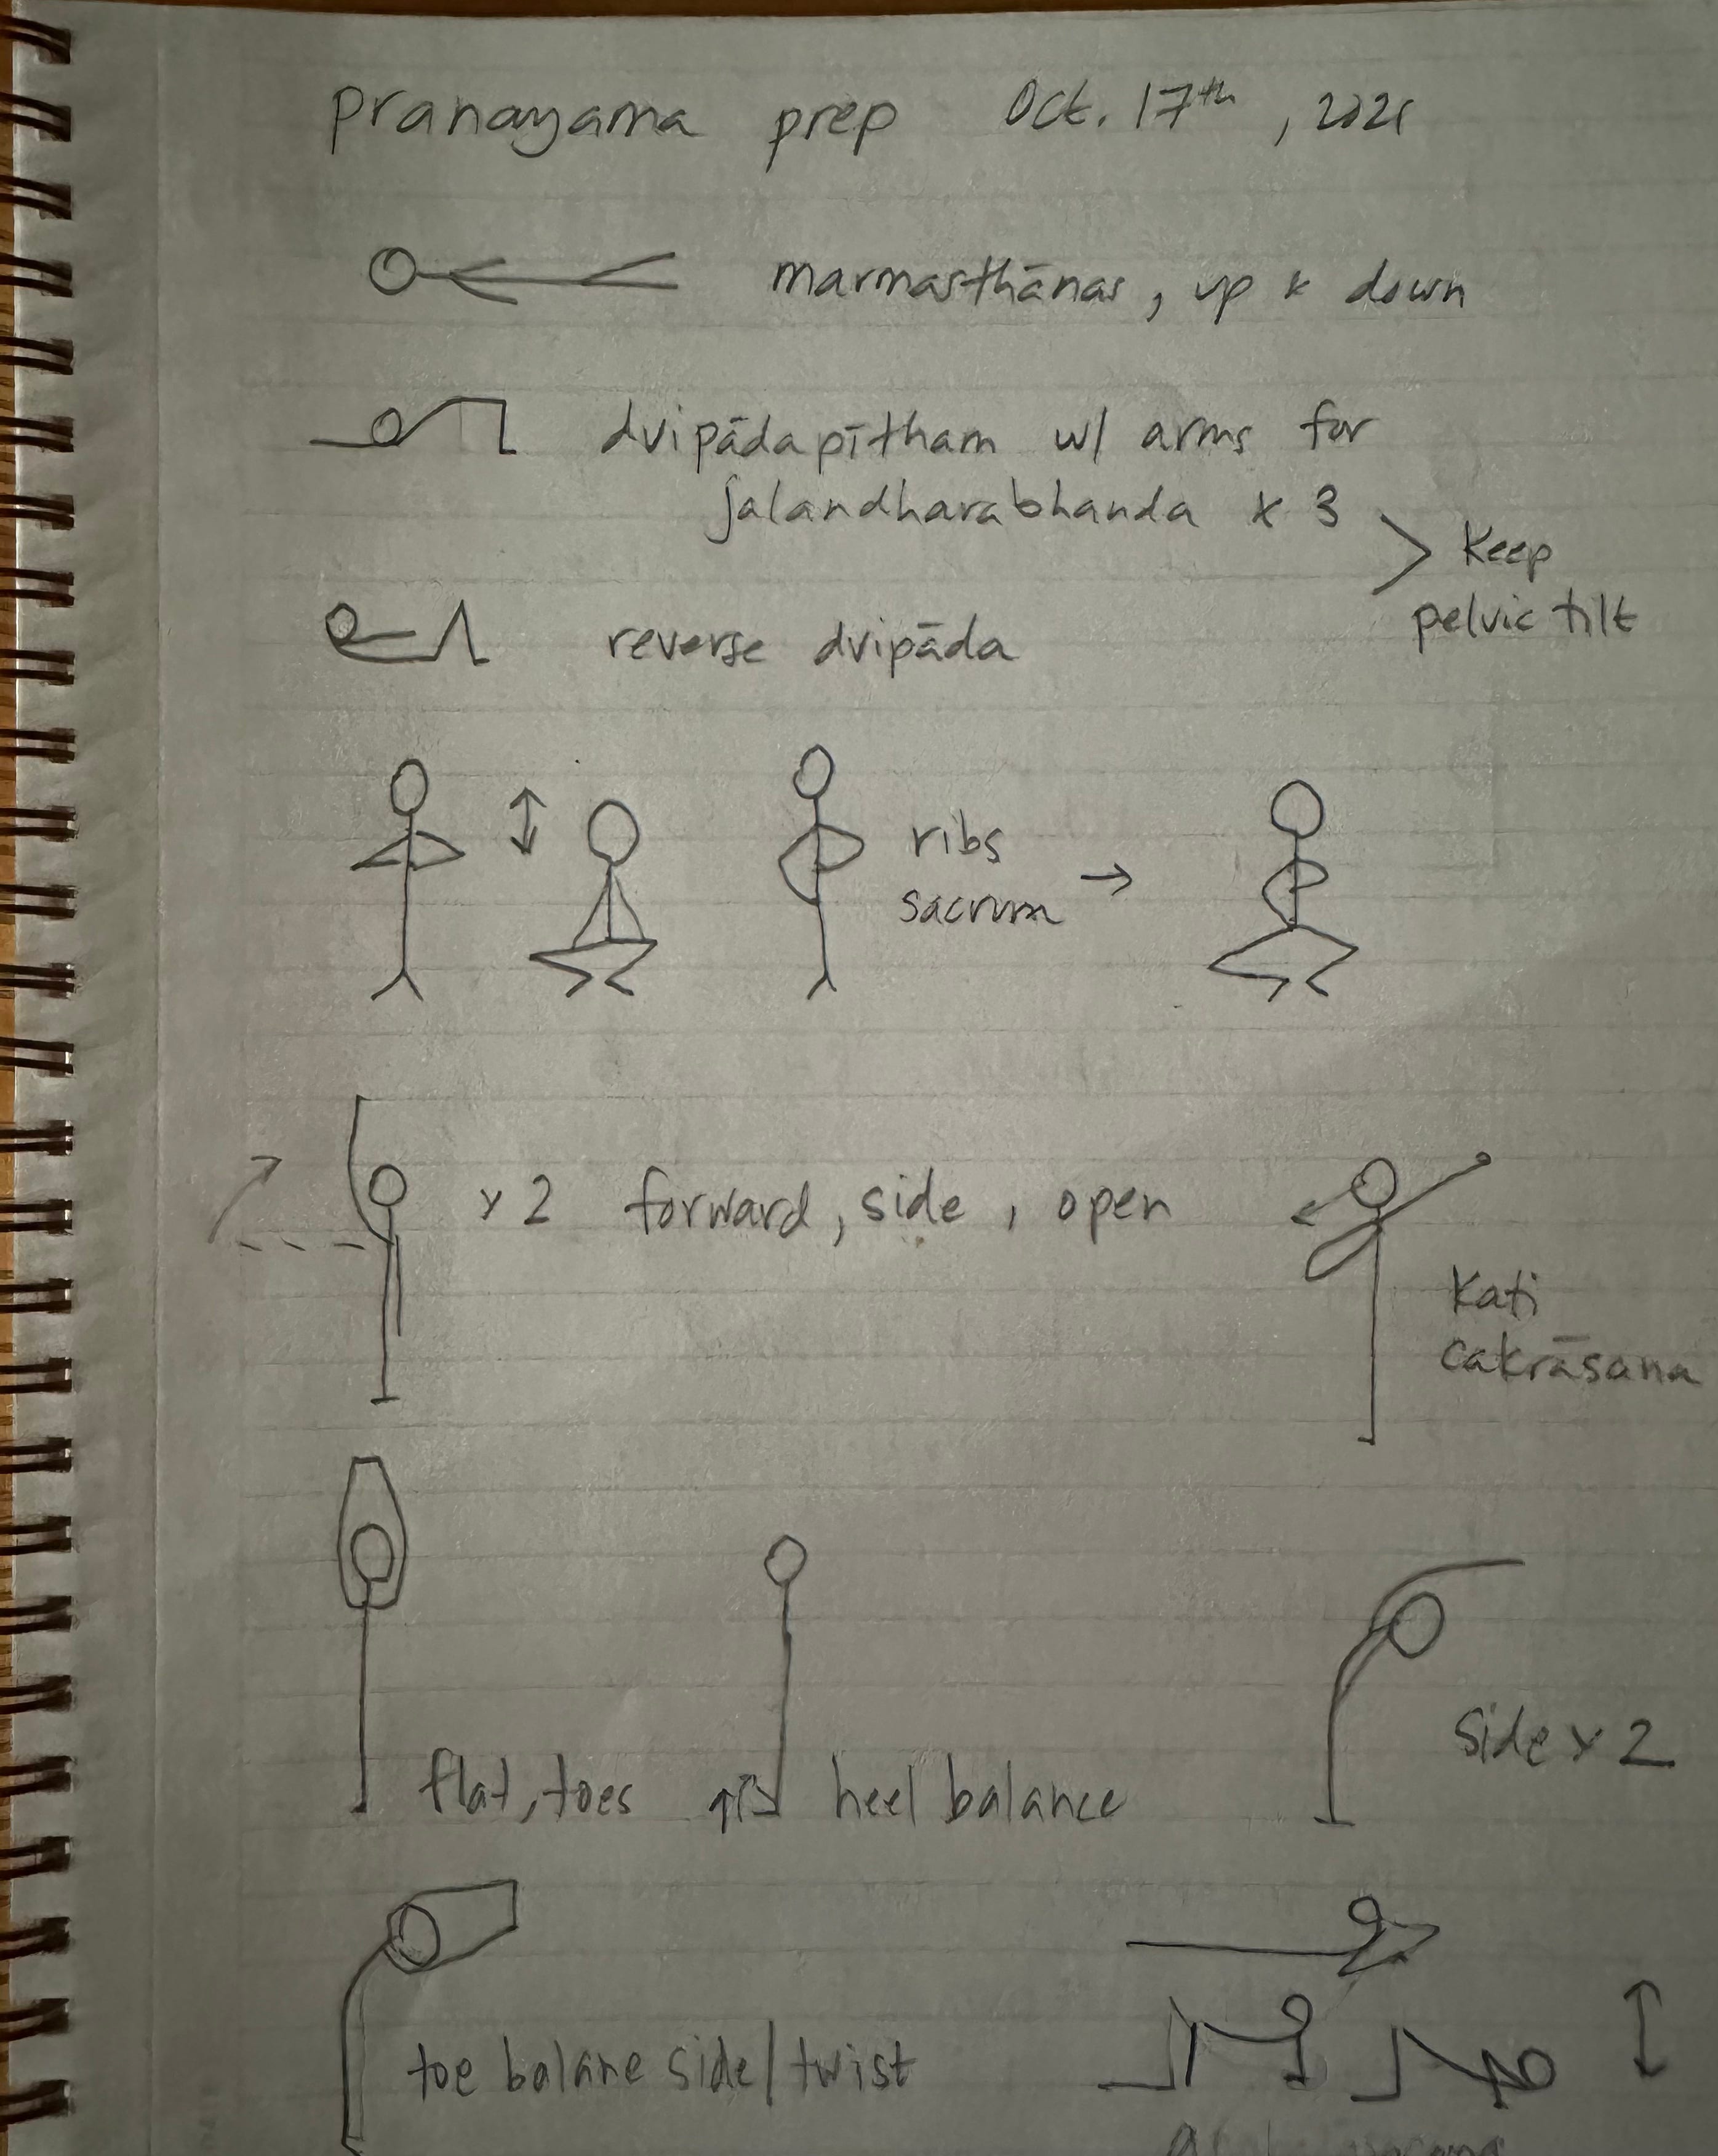 pranayama prep Oct. 17th, 2021
marmasthānas, up & down
dvipādapītham w/ arms for
jalandharabhanda x 3
Keep
pelvic tilt
reverse dvipāda
ribs
sacrum
x 2 forward, side, open
Kati
cakrāsana
flat, toes
heel balance
side x 2
toe balane side/twist